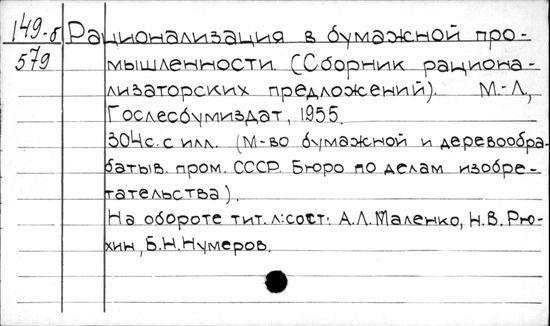 149-б Рационализация в бумажной про-
579 мышленности. (Сборник рациона-
лизаторских предложений). М.-Л.,
Гослесбумиздат, 1955.
304с. с илл. (М-во бумажной и деревообра-
батыв. пром. СССР. Бюро по делам изобре-
тательства).
На обороте тит. л: сост: А.Л.Маленко, Н.В. Рю-
хин, Б.Н.Нумеров.